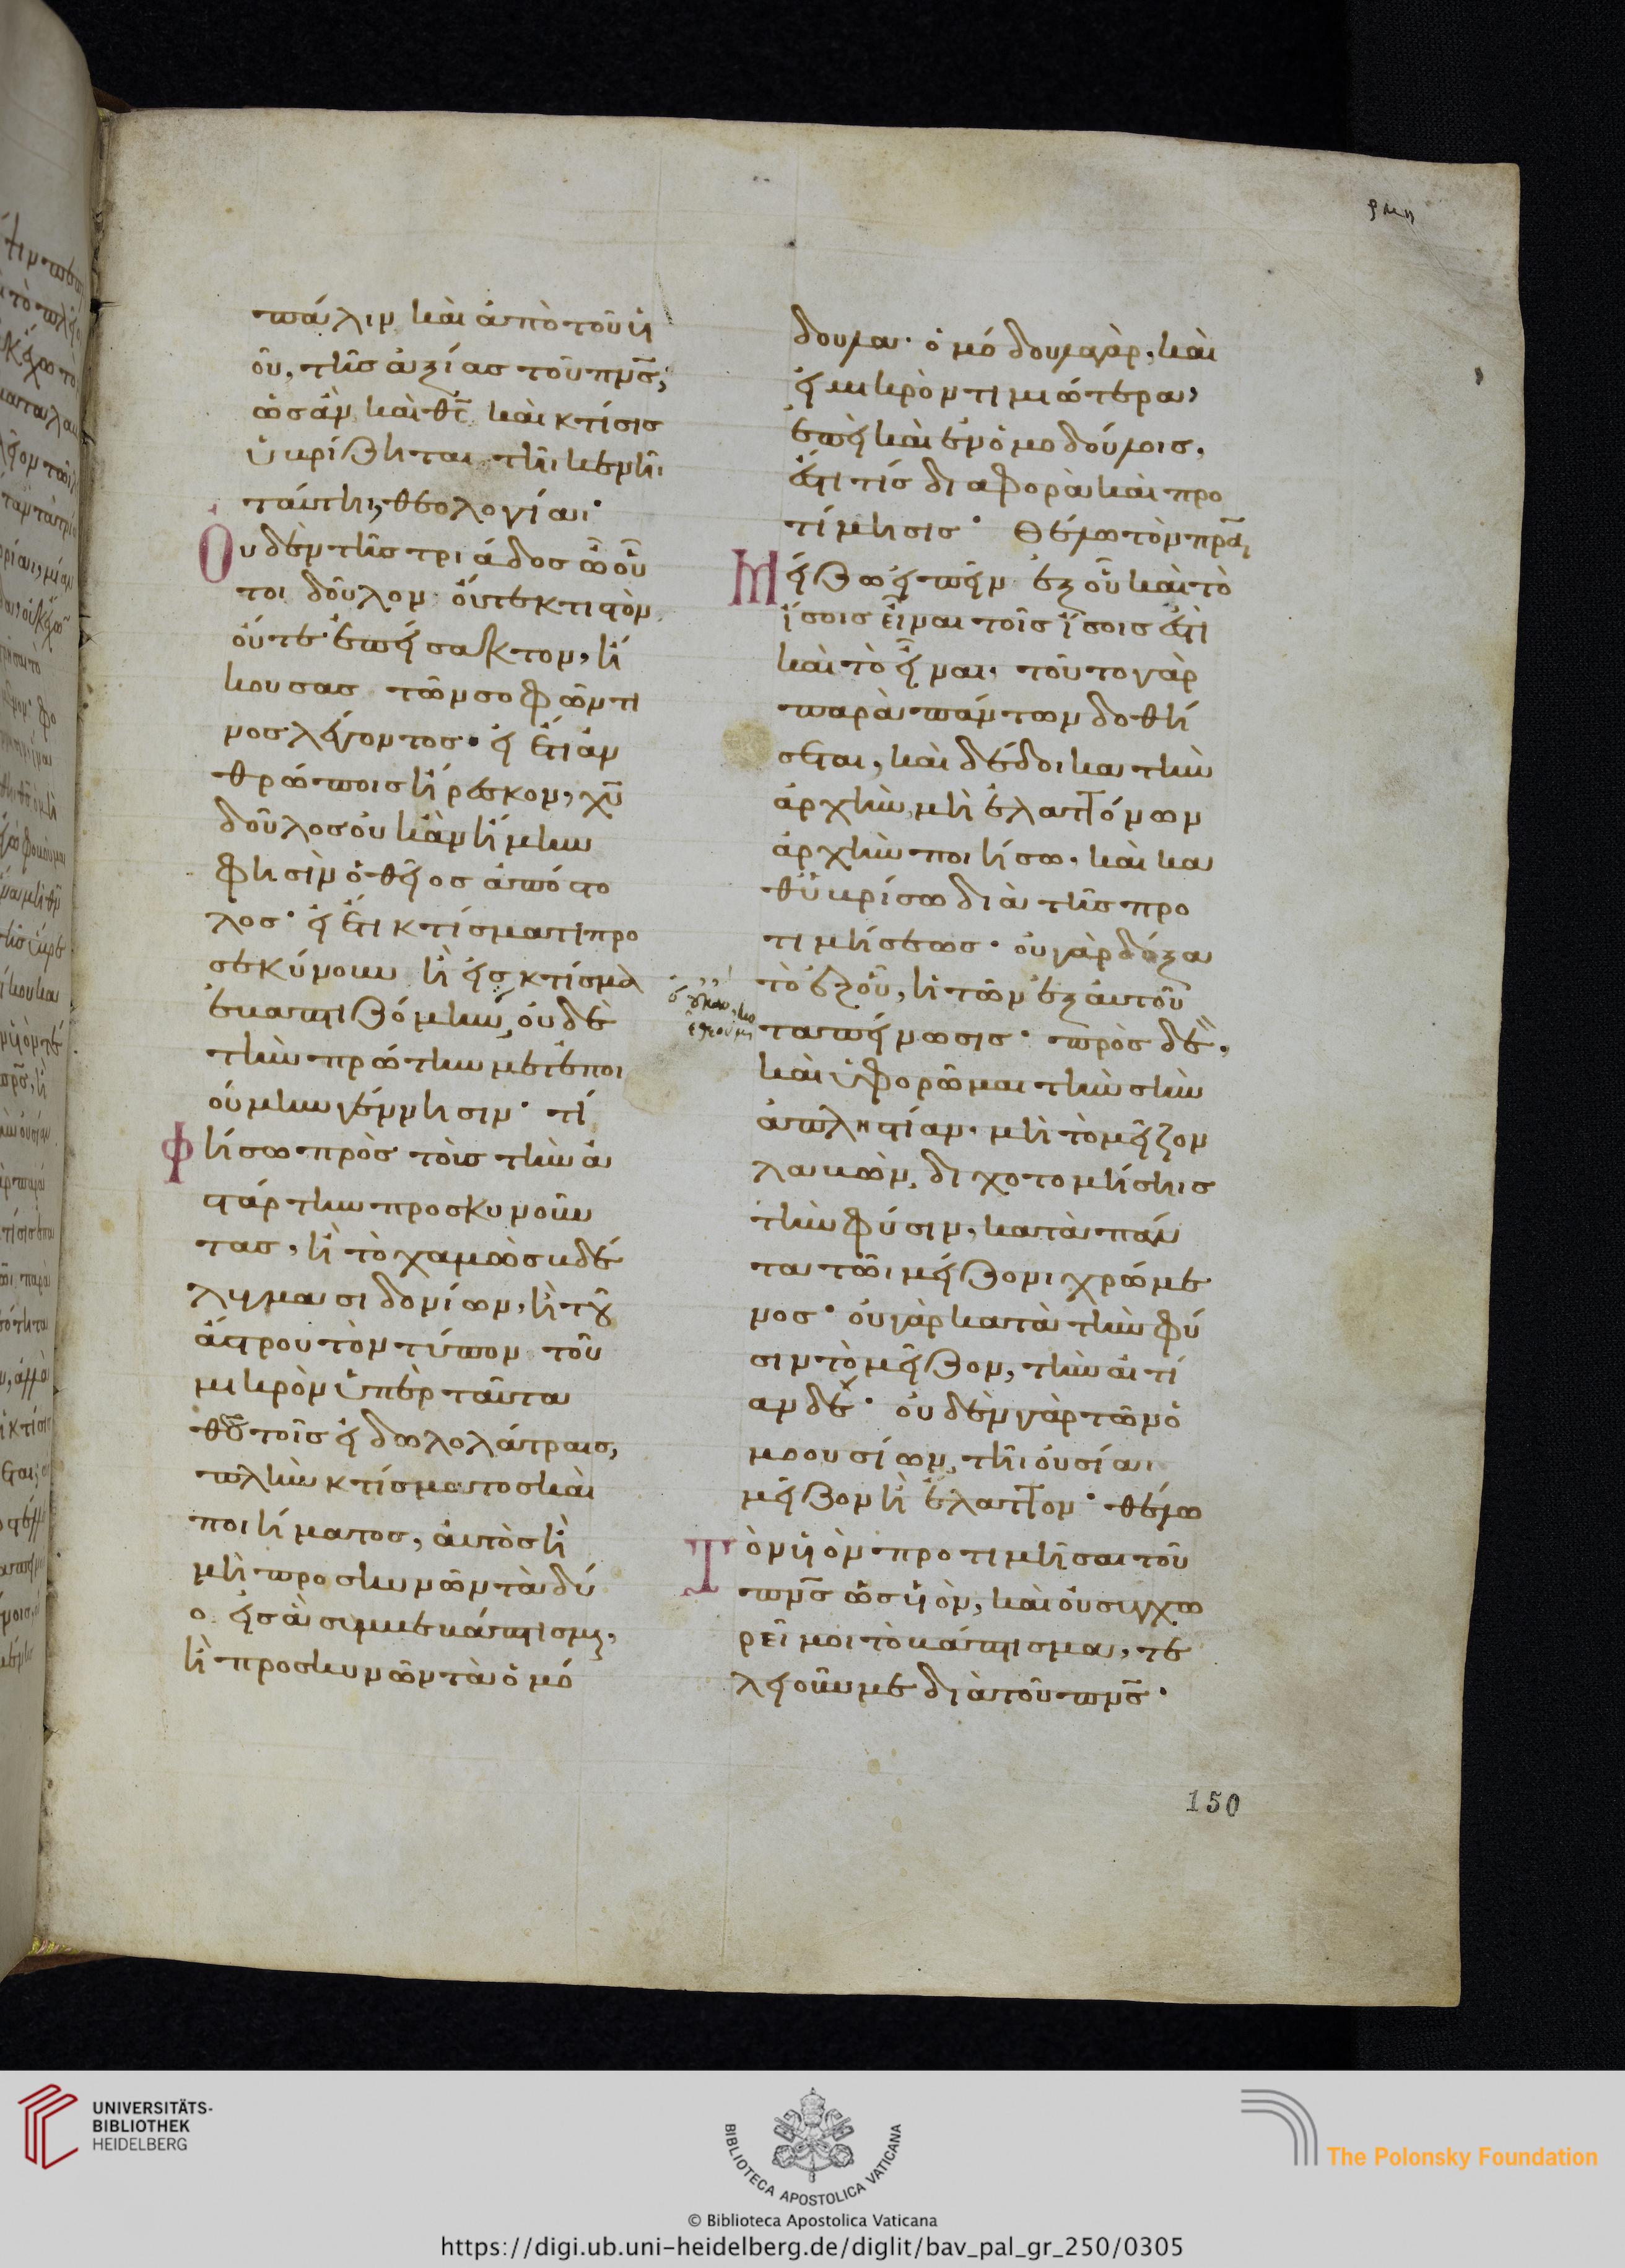 ρμη
πάλιν καὶ ἀπὸ τοῦ υἱ
οῦ, τῆς ἀξίας τοῦ πν̅ς̅,
ὡς ἂν καὶ θς̅ καὶ κτίσις
ὑβρίζηται τῆι κενῆι
ταύτηι, θεολογίαι·
Οὐδὲν τῆς τριάδος ὦ οὗ
τοι δοῦλον· οὔτε κτιστὸν
οὔτε ἐπείσακτον, ἤ
κουσας τῶν σοφῶν τι
νος λέγοντος· εἰ ἔτι ἀν
θρώποις ἤρεσκον, χυ̅
δοῦλος οὐκ ἂν ἤμην
φησὶν ὁ θεῖος ἀπόστο
λος· εἰ ἔτι κτίσματι προ
σεκύνουν ἢ εἰς κτίσμα
ἐβαπτιζόμην, οὐδὲ
τὴν πρώτην μετεποι
ούμην γέννησιν· τί
φήσω πρὸς τοὺς τὴν ἀ
στάρτην προσκυνοῦν
τας, ἢ τὸ χαμὼς βδέ
λυγμα σιδονίων, ἢ τοῦ
ἄστρου τὸν τύπον τοῦ
μικρὸν ὑπὲρ ταῦτα
θοῦ τοῖς εἰδωλολάτραις,
πλὴν κτίσματος καὶ
ποιήματος, αὐτὸς ἢ
μὴ προσκυνῶν τὰ δύ
ο εἰς ἃ συμβεβάπτισμαι,
ἢ προσκυνῶν τὰ ὁμό
οὐκ ἂν
ἐθεούμην
δουλα· ὁμόδουλα γὰρ, καὶ
εἰ μικρὸν τιμιώτερα,
ἐπεὶ καὶ ἐν ὁμοδούλοις,
ἔστι τίς διαφορὰ καὶ προ
τίμησις· Θέλω τὸν πρ̅α̅
μείζω εἰπεῖν ἐξ οὗ καὶ τὸ
ἴσοις εἶναι τοῖς ἴσοις ἐστὶ
καὶ τὸ εἶναι· τοῦτο γὰρ
παρὰ πάντων δοθή
σεται, καὶ δέδοικα τὴν
ἀρχὴν, μὴ ἐλαττόνων
ἀρχὴν ποιήσω, καὶ κα
θυβρίσω διὰ τῆς προ
τιμήσεως· οὐ γὰρ δόξα
τὸ ἐξ οὗ, ἡ τῶν ἐξ αὐτοῦ
ταπείνωσις· πρὸς δὲ,
καὶ ὑφορῶμαι τὴν σὴν
ἀπληστίαν· μὴ τὸ μεῖζον
λαβὼν, διχοτομήσηις
τὴν φύσιν, κατὰ πάν
τα τῶι μείζονι χρώμε
νος· οὐ γὰρ κατὰ τὴν φύ
σιν τὸ μεῖζον, τὴν αἰτί
αν δέ· οὐδὲν γὰρ τῶν ὁ
μοουσίων, τῆι οὐσίαι
μεῖζον ἢ ἔλαττον· θέλω
Τὸν υἱὸν προτιμῆσαι τοῦ
πν̅ς̅ ὡς υἱὸν, καὶ οὐ συγχω
ρεῖ μοι τὸ βάπτισμα, τε
λειοῦν με διὰ τοῦ πν̅ς̅·
150
UNIVERSITÄTS-
BIBLIOTHEK
HEIDELBERG
BIBLIOTECA APOSTOLICA VATICANA
The Polonsky Foundation
© Biblioteca Apostolica Vaticana
https://digi.ub.uni-heidelberg.de/diglit/bav_pal_gr_250/0305